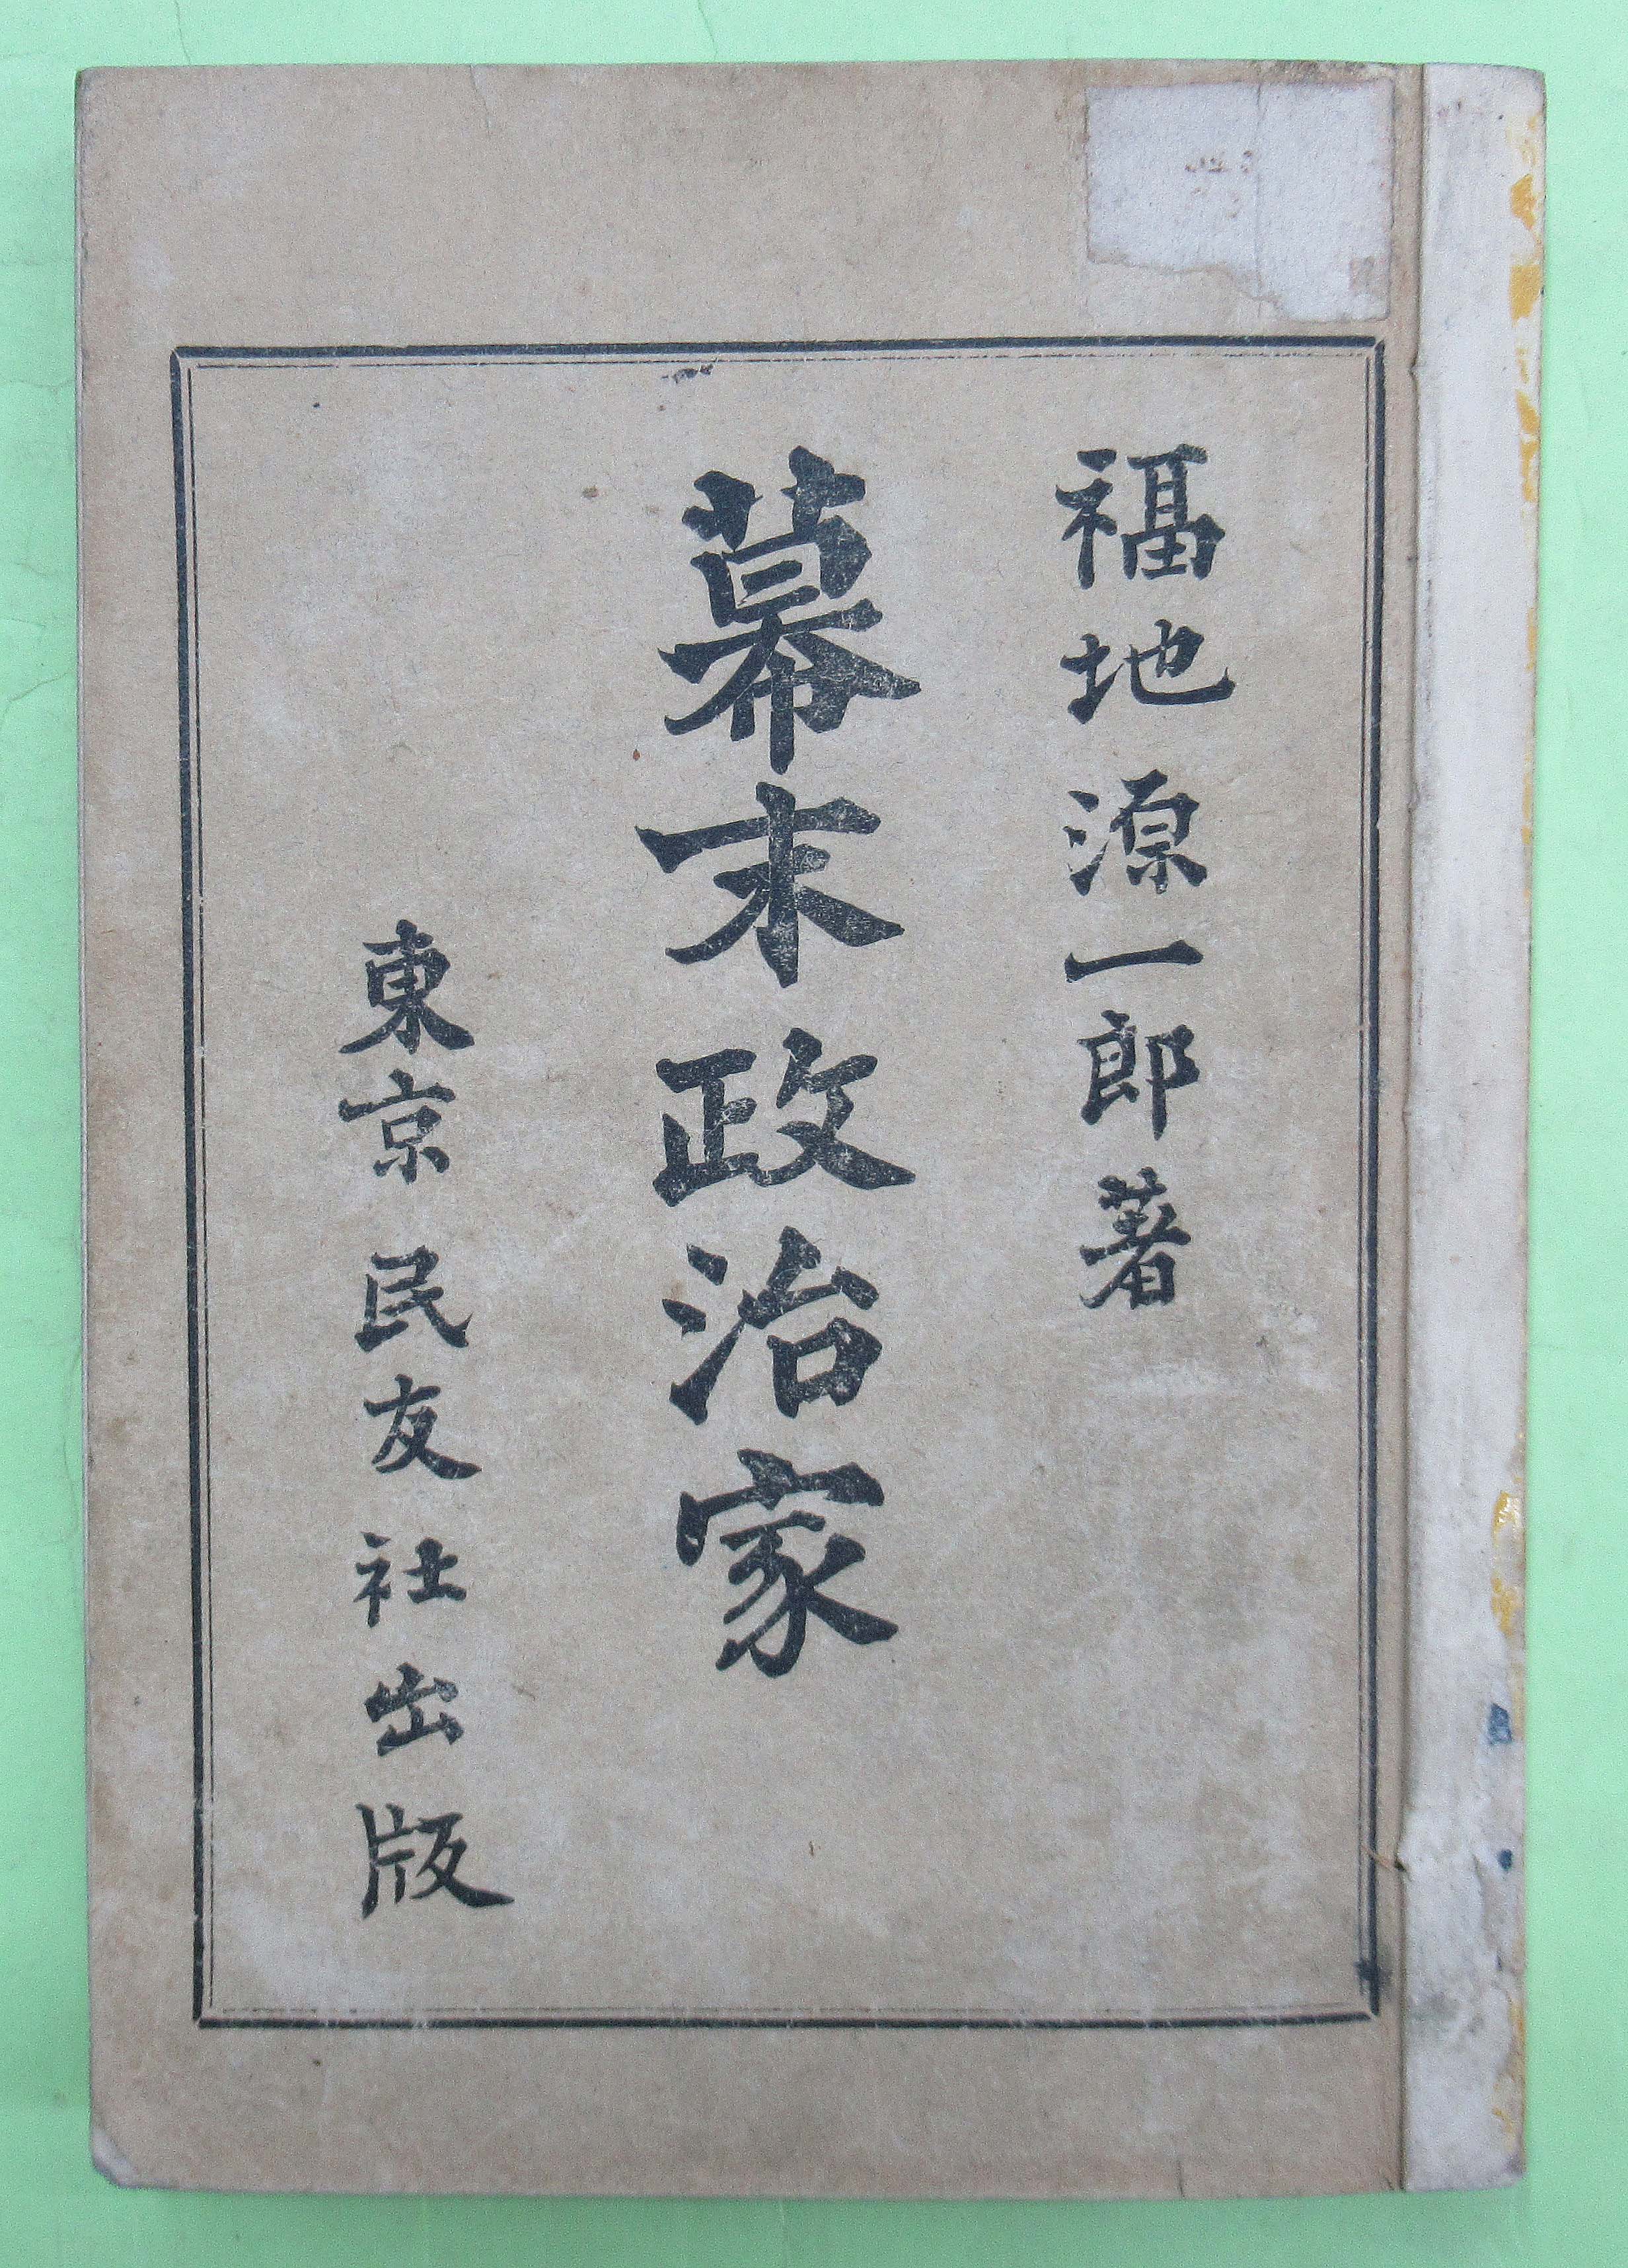 福地源一郎著
幕末政治家
東京民友社出版